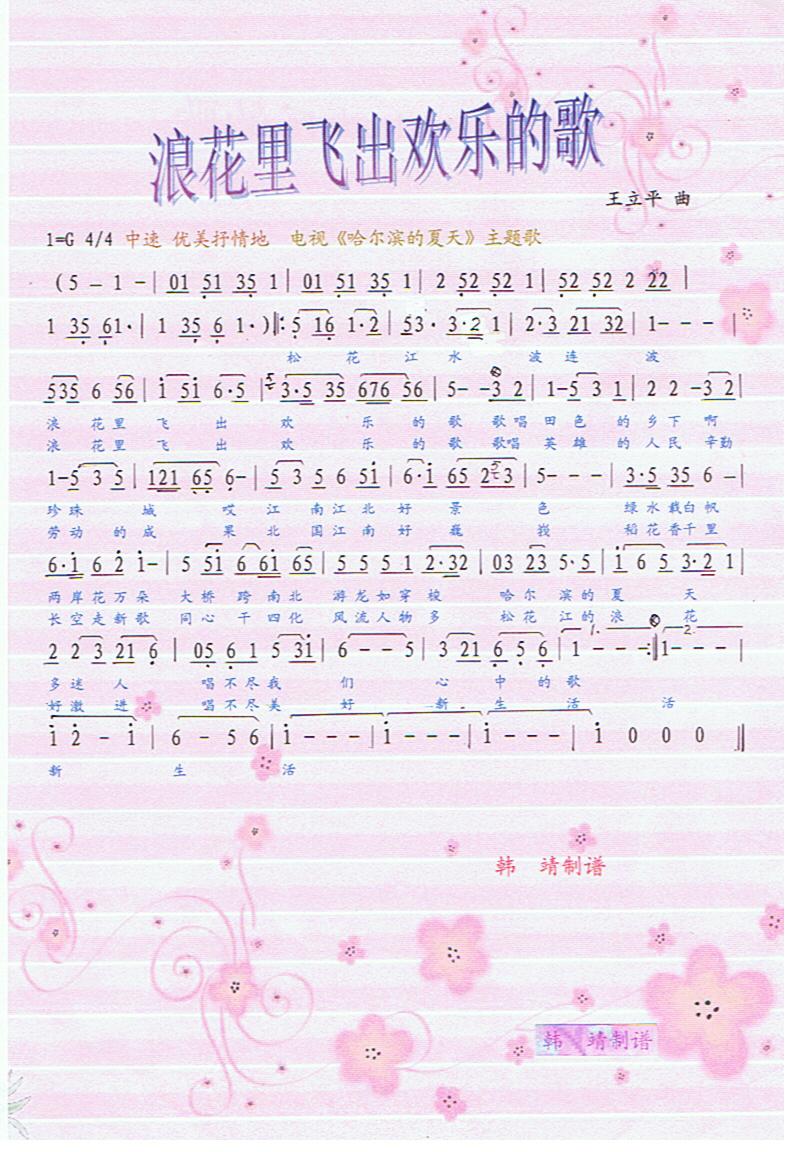 浪花里飞出欢乐的歌
王立平 曲
1=G 4/4 中速 优美抒情地 电视《哈尔滨的夏天》主题歌
(5 – 1 –| 01 51 35 1| 01 51 35 1| 2 52 52 1| 52 52 2 22|
1 35 61·| 1 35 6 1·)‖: 5 16 1·2| 53· 3·2 1| 2·3 21 32| 1- - -|
松 花 江 水 波 连 波
535 6 56| i 5i 6·5| 3·5 35 676 56| 5- -3 2| 1-5 3 1| 2 2 -3 2|
浪 花 里 飞 出 欢 乐 的 歌 歌唱 田 色 的 乡 下 啊
浪 花 里 飞 出 欢 乐 的 歌 歌唱 英 雄 的 人 民 辛勤
1-5 3 5| 121 65 6-| 5 3 5 6 5i| 6·i 65 2 3| 5- - -| 3·5 35 6 -|
珍珠 城 哎 江 南江 北 好 景 色 绿水载白帆
劳动 的 成 果 北 国江 南 好 巍 峨 稻花香千里
6·i 62 i-| 5 5i 6 6i 65| 5 5 5 1 2·32| 03 23 5·5| i 6 5 3·2 1|
两岸花万朵 大桥 跨南北 游龙如穿梭 哈尔 滨的夏 天
长空走新歌 同心 干四化 风流人物多 松花 江的浪 花
2 2 3 21 6| 05 6 1 5 3i| 6 - - 5| 3 21 6 5 6| 1 - - -:‖1- - -|
1. 2.
多迷人 唱不尽我 们 心 中 的 歌
好激进 唱不尽美 好 新 生 活 活
i 2 - i| 6 - 5 6| i - - -| i - - -| i - - -| i 0 0 0 ‖
新 生 活
韩 靖制谱
韩 靖制谱